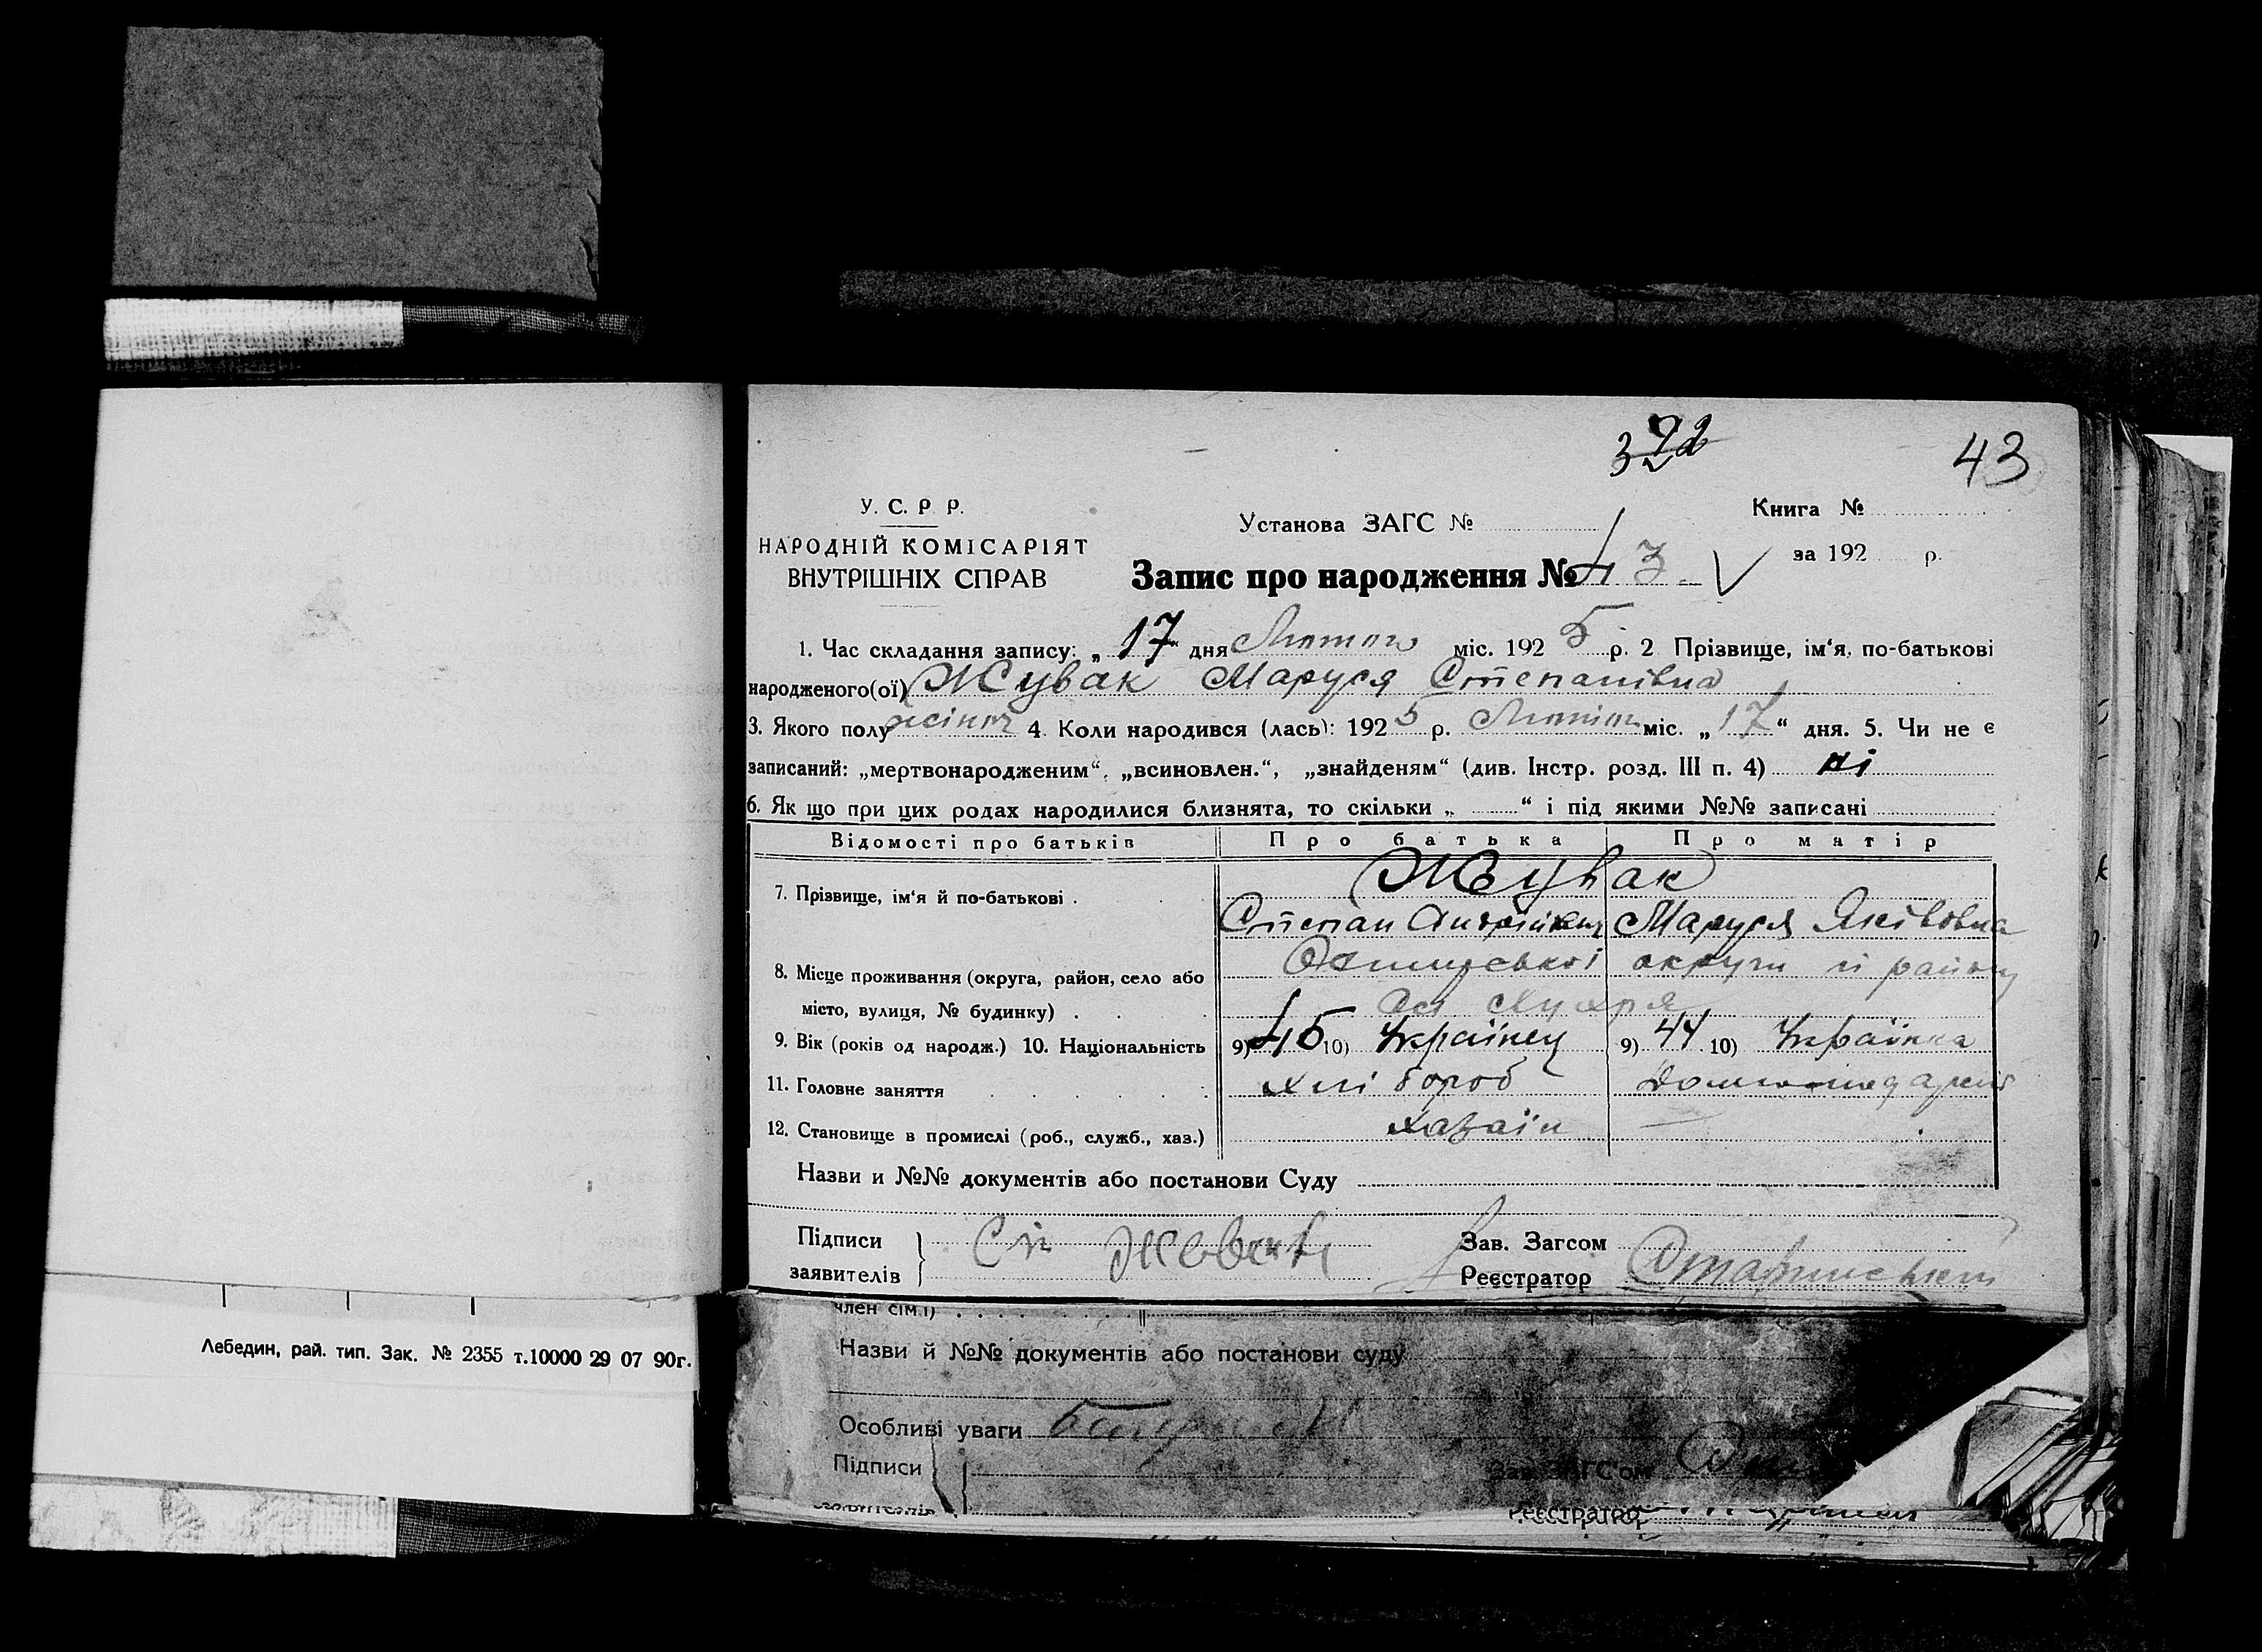 322
43
У. С. Р Р.
Установа ЗАГС №
Книга №
НАРОДНІЙ КОМІСАРІЯТ
ВНУТРІШНІХ СПРАВ
за 192 р.
Запис про народження № 43
1. Час складання запису: „ 17 " дня Лютого міс. 192 5 р. 2 Прізвище, ім'я, по-батькові
народженого(ої) Жувак Маруся Степанівна
3. Якого полу жіноч 4. Коли народився (лась): 192 5 р. міс. „ 17 “ дня. 5. Чи не є
записаний: „мертвонародженим“, „всиновлен.“, „знайденям“ (див. Інстр. розд. III п. 4) ні
6. Як що при цих родах народилися близнята, то скільки „ “ і під якими №№ записані
Відомості про батьків Про батька Про матір
7. Прізвище, ім'я й по-батькові . Жувак
Степан Маруся Яківовна
8. Місце проживання (округа, район, село або округи й району
місто, вулиця, № будинку) .
9. Вік (років од народж.) 10. Національність 9) 45 10) Українец 9) 44 10) Українка
11. Головне заняття хлібороб
12. Становище в промислі (роб., служб., хаз.) хазаін —
Назви и №№ документів або постанови Суду
Підписи
заявителів
Зав. Загсом
Реєстратор
член сім.ї)
Лебедин, рай. тип. Зак. № 2355 т.10000 29 07 90г.
Назви й №№ документів або постанови суду
Особливі уваги
Підписи
Зав. ЗАГС'ом
заявителів
Реєстратор